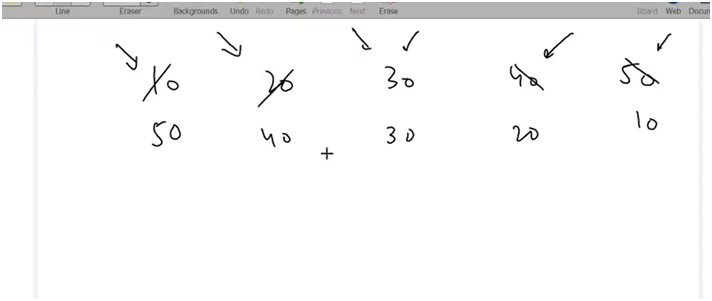 Line Eraser Backgrounds Undo Redo Pages Previous Next Erase Board Web Docun
10 20 30 40 50
50 40 30 20 10
+